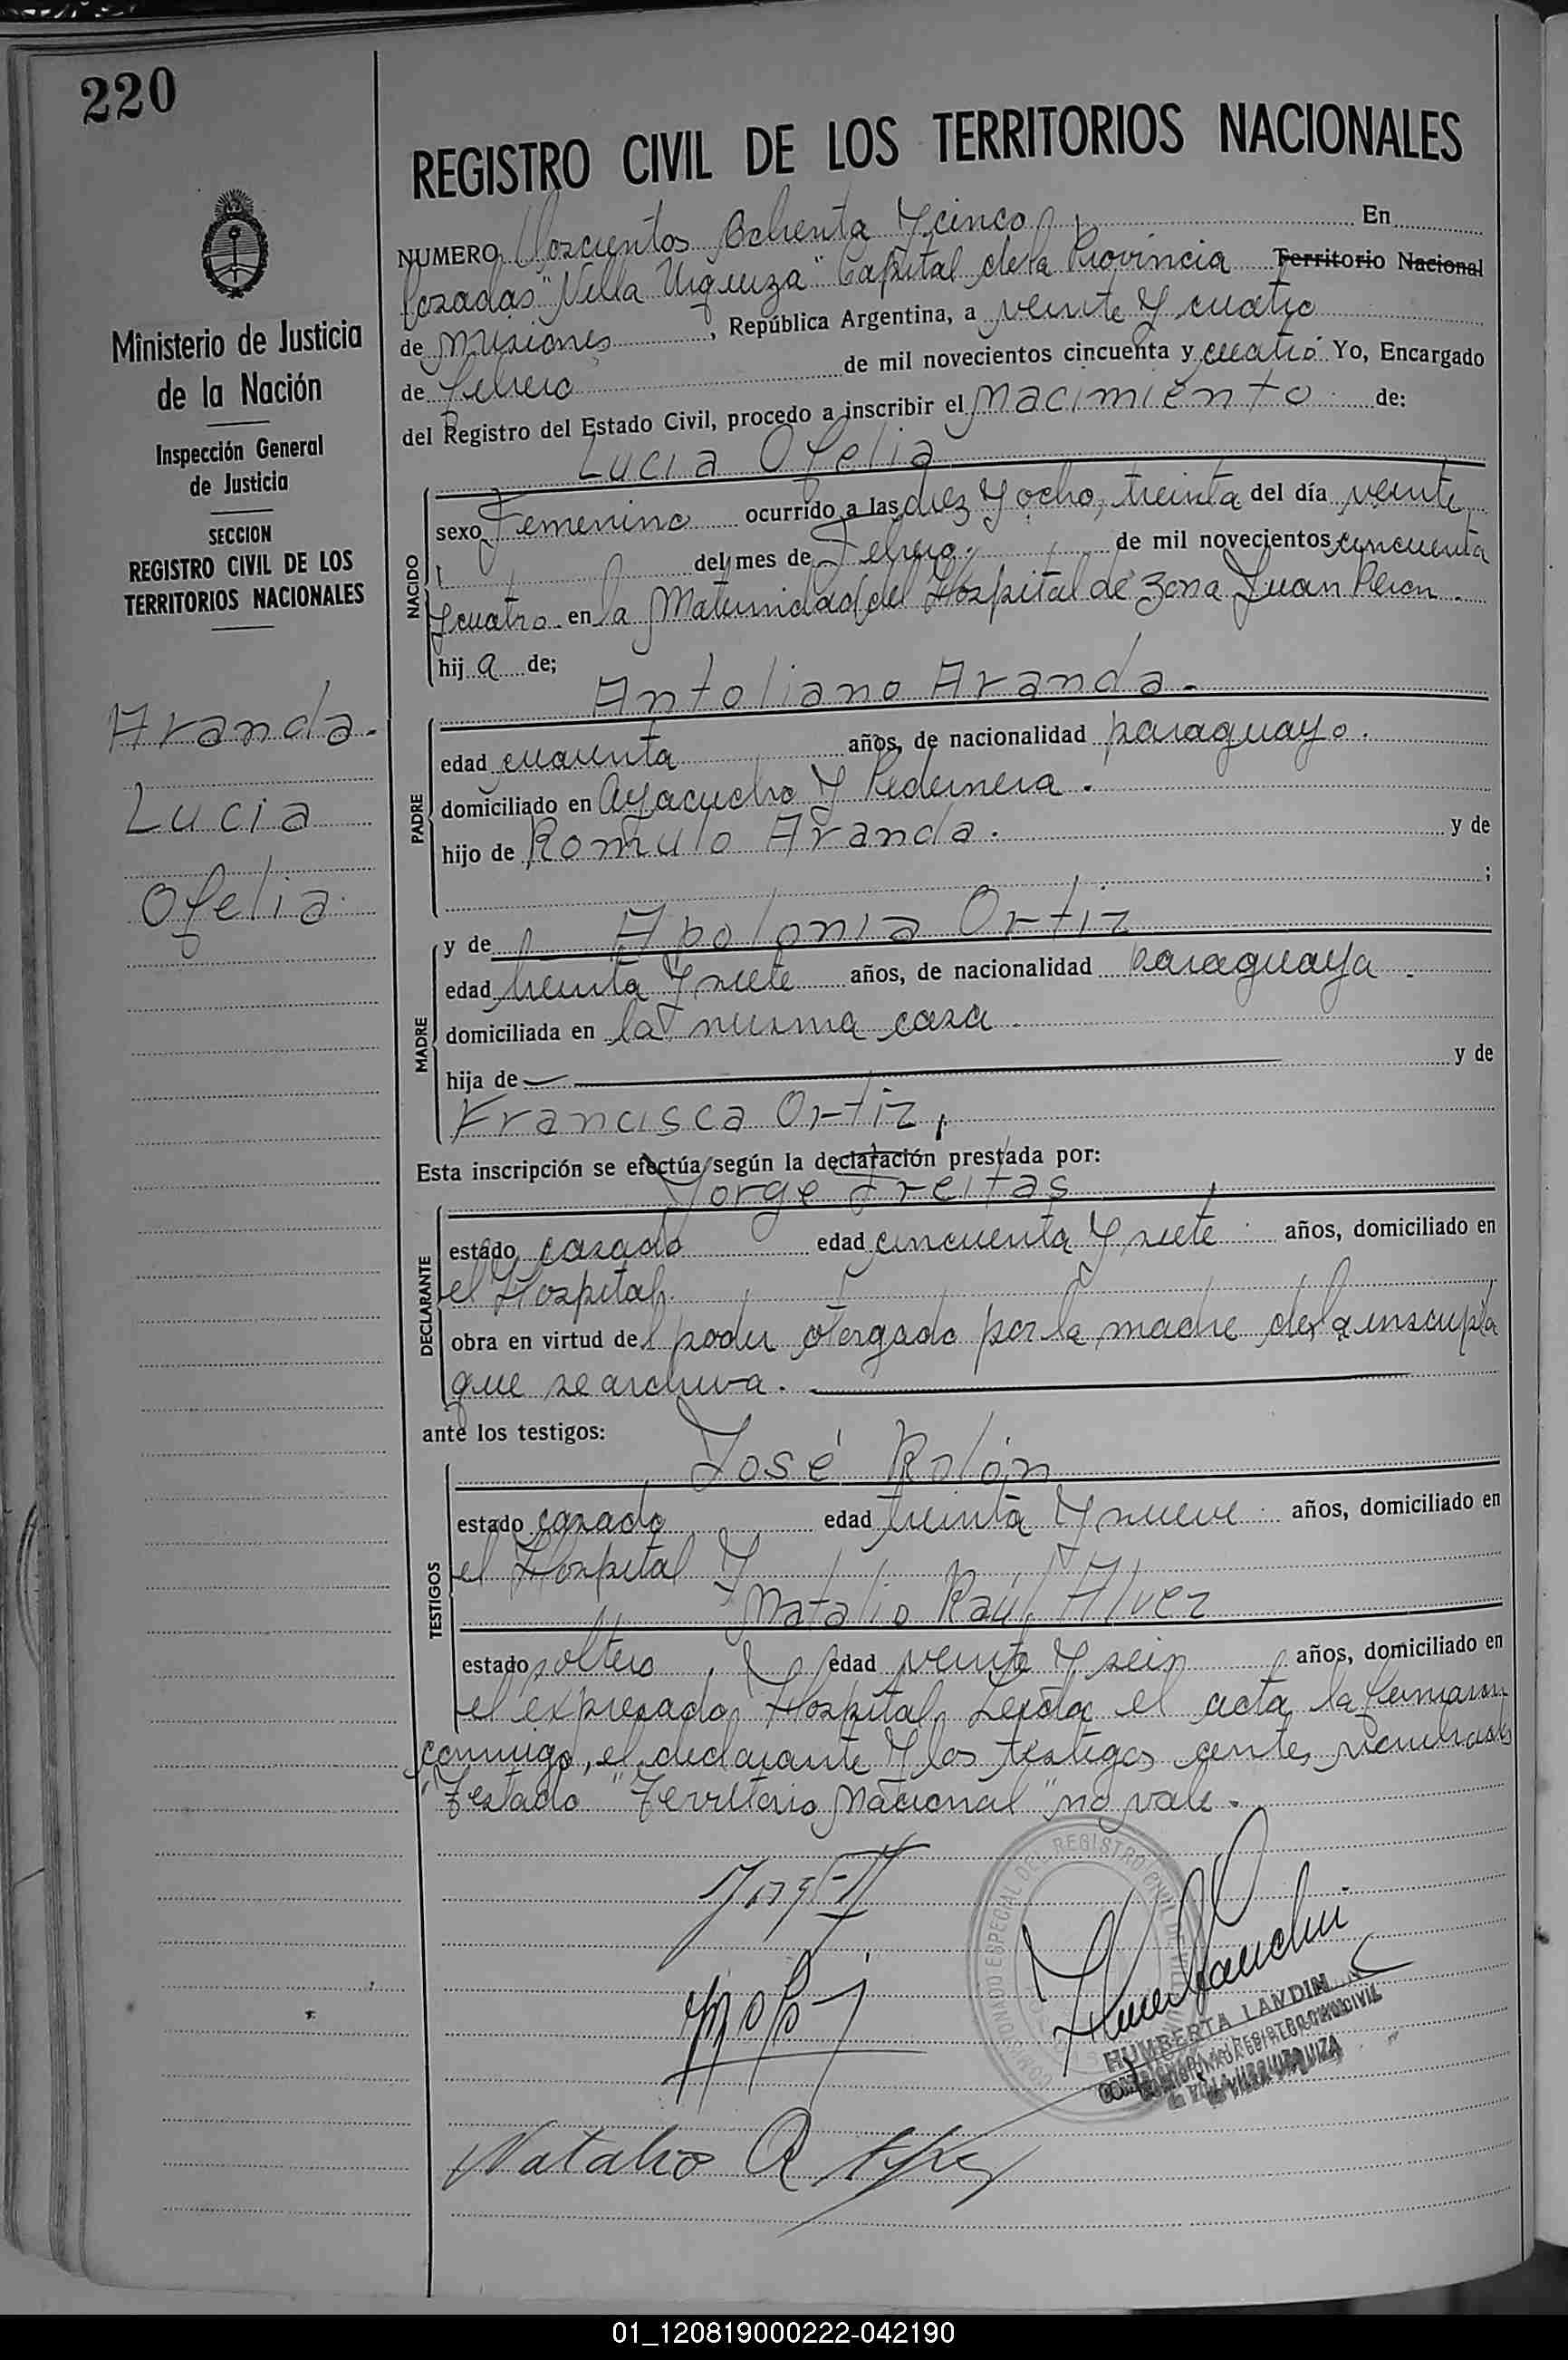 220
Ministerio de Justicia
de la Nación
Inspección General
de Justicia
SECCION
REGISTRO CIVIL DE LOS
TERRITORIOS NACIONALES
Aranda.
Lucia
Ofelia.
REGISTRO CIVIL DE LOS TERRITORIOS NACIONALES
NUMERO Doscientos Ochenta Y cinco En
Posadas "Villa Urquiza" Capital de la Provincia Territorio Nacional
de Misiones, República Argentina, a veinte Y cuatro
de Febrero de mil novecientos cincuenta y cuatro Yo, Encargado
del Registro del Estado Civil, procedo a inscribir el Nacimiento de:
Lucia Ofelia
NACIDO
sexo Femenino ocurrido a las diez Y ocho, treinta del día veinte
del mes de Febrero. de mil novecientos cincuenta
Y cuatro. en la Maternidad del Hospital de Zona Juan Peron.
hij a de;
Antoliano Aranda.
PADRE
edad cuarenta años, de nacionalidad paraguayo.
domiciliado en Ayacucho Y Pedernera.
hijo de Romulo Aranda. y de
;
MADRE
y de Apolonia Ortiz
edad treinta Y siete años, de nacionalidad paraguaya.
domiciliada en la misma casa.
hija de y de
Francisca Ortiz,
Esta inscripción se efectúa según la declaración prestada por:
Jorge Freitas
DECLARANTE
estado casado edad cincuenta Y siete años, domiciliado en
el Hospital.
obra en virtud del poder otorgado por la madre de la inscripta
que se archiva.
ante los testigos:
José Rolón
TESTIGOS
estado casado edad treinta Y nueve años, domiciliado en
el Hospital Y
Natalio Raúl Alvez
estado soltero, edad veinte Y seis años, domiciliado en
el expresado Hospital Leída el acta la firmaron
conmigo, el declarante Y los testigos
"Testado "Territorio Nacional" no vale.
Natalio R
REGISTRO CIVIL
HUMBERTA LANDIN
01_120819000222-042190